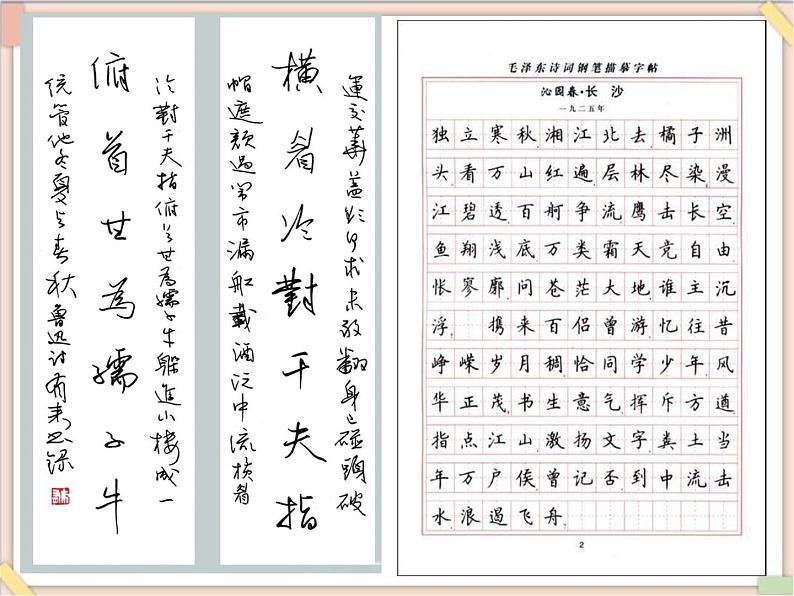 運交華蓋欲何求未敢翻身已碰頭破
橫眉冷對千夫指
帽遮顏過鬧市漏船載酒泛中流橫眉
冷對千夫指俯首甘為孺子牛躲進小樓成一
俯首甘為孺子牛
統管他冬夏与春秋 魯迅诗
毛泽东诗词钢笔描摹字帖
沁园春·长 沙
一九二五年
独立寒秋湘江北去橘子洲
头看万山红遍层林尽染漫
江碧透百舸争流鹰击长空
鱼翔浅底万类霜天竞自由
怅寥廓问苍茫大地谁主沉
浮 携来百侣曾游忆往昔
峥嵘岁月稠恰同学少年风
华正茂书生意气挥斥方遒
指点江山激扬文字粪土当
年万户侯曾记否到中流击
水浪遏飞舟
2